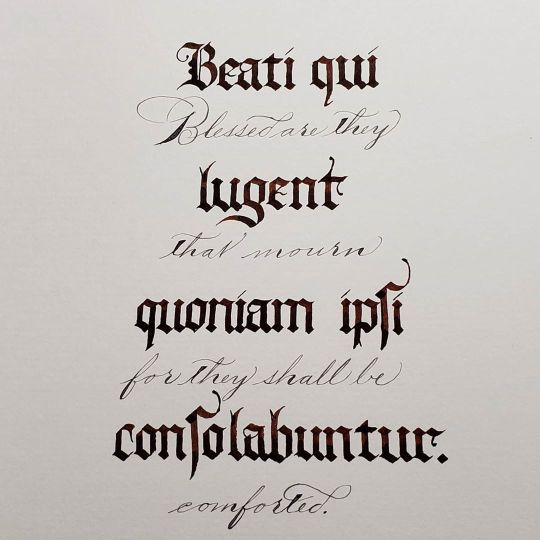 Beati qui
Blessed are they
lugent
that mourn
quoniam ipſi
for they shall be
conſolabuntur.
comforted.